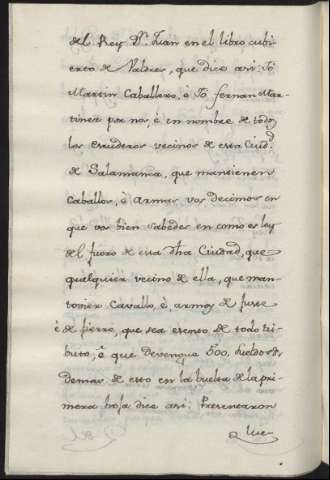 del Rey Dn. Juan en el libro cubi-
erto de Valdres, que dice asi: Io
Martin Caballero, è Io fernan Mar-
tinez por nos, è en nombre de todos
los escuderos vecinos de esta Ciud.d
de Salamanca, que mantienen
Caballos, è armas vos decimos en
que vos bien sabedes en como es ley
del fuero de esta dha Ciudad, que
qualquier vecino de ella, que man-
tovier Cavallo, è armas de fuste
è de fierro, que sea esento de todo tri-
buto, è que devengue 500. sueldos.
Demas de esto en la buelta de la pri-
mera hoja dice asi: Presentaron